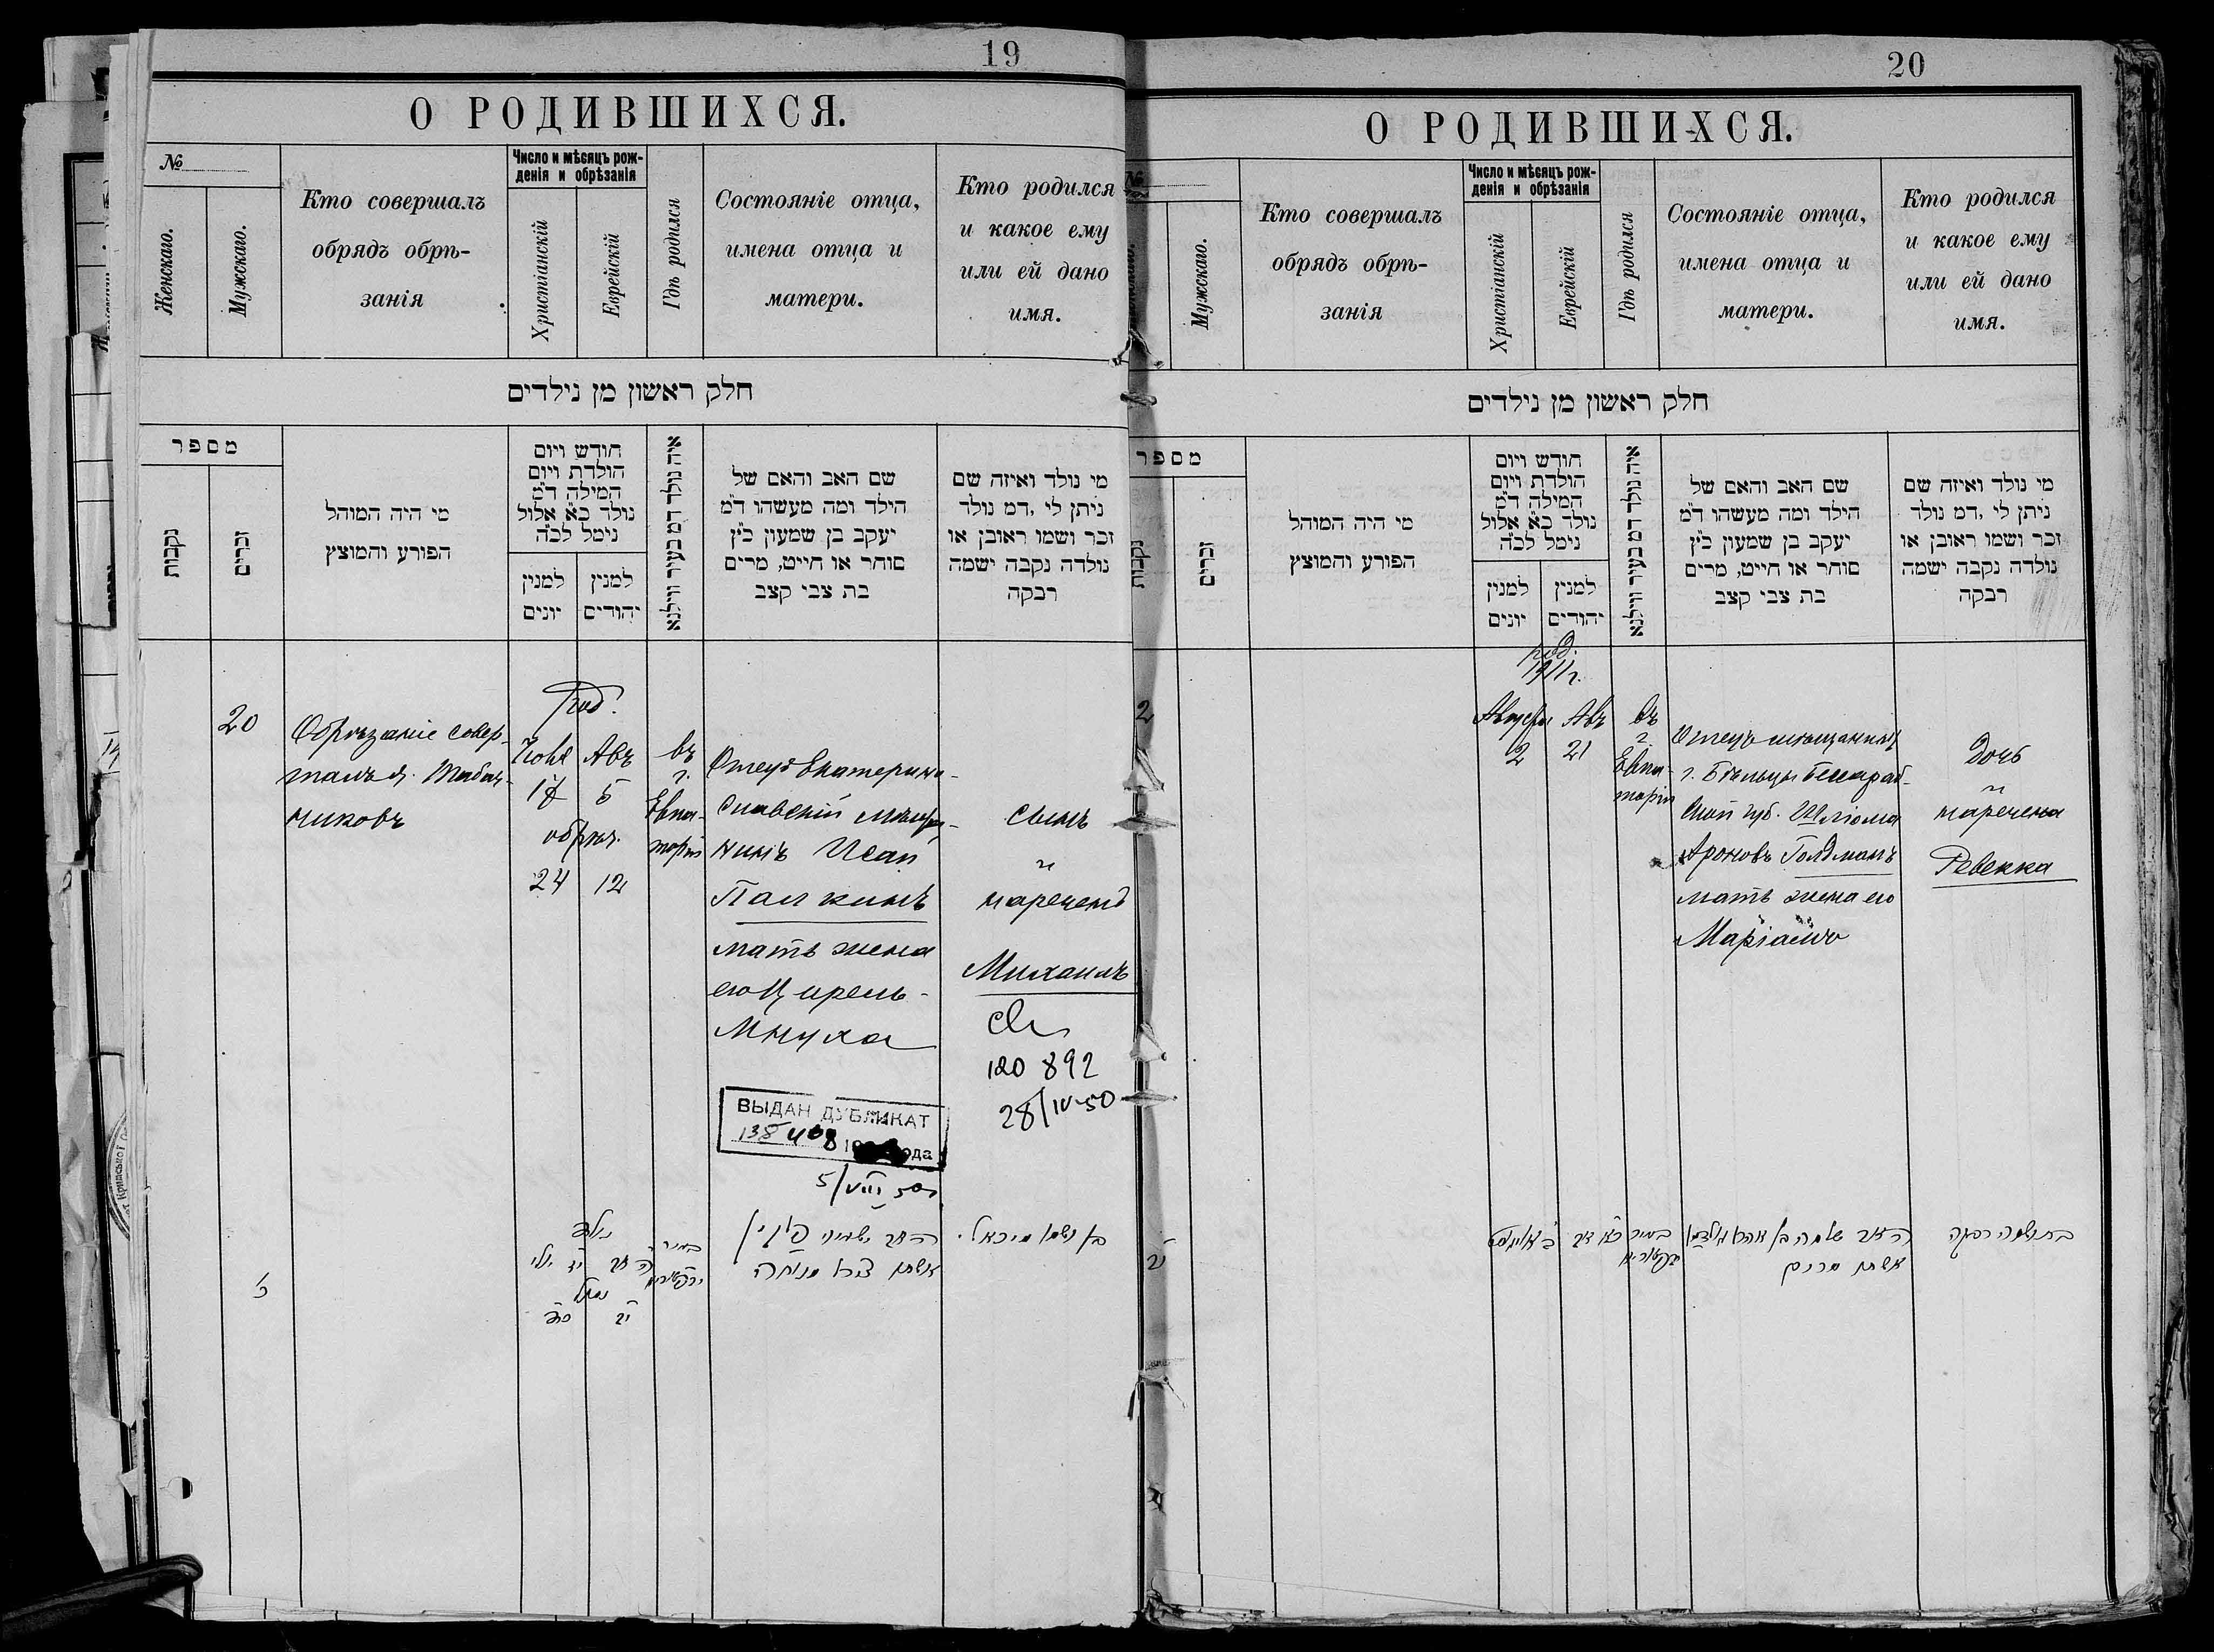 19
О РОДИВШИХСЯ.
№
Женскаго.
Мужскаго.
Кто совершалъ
обрядъ обрѣ-
занія
Число и мѣсяцъ рож-
денія и обрѣзанія
Христіанскій
Еврейскій
Гдѣ родился
Состояніе отца,
имена отца и
матери.
Кто родился
и какое ему
или ей дано
имя.
חלק ראשון מן נילדים
מספר
נקבות
זכרים
מי היה המוהל
הפורע והמוצץ
חודש ויום
הולדת ויום
המילה ד״מ
נולד כ״א אלול
נימל לכ״ה
למנין
יונים
למנין
יהודים
איה נולד דמ בעיר ווילנא
שם האב והאם של
הילד ומה מעשהו ד״מ
יעקב בן שמעון כ״ץ
סוחר או חייט, מרים
בת צבי קצב
מי נולד ואיזה שם
ניתן לי ,דמ נולד
זכר ושמו ראובן או
נולדה נקבה ישמה
רבקה
20
Обрѣзаніе совер-
шалъ Я. Табач-
никовъ
род.
Іюля
Авъ
5
обрѣз.
24
12
въ
г.
Евпа-
торіи
Отецъ Екатерино-
славскій мѣща-
нинъ Исай
Палкинъ
мать жена
его Цирель-
Мнуха
сынъ
нареченъ
Михаилъ
120 892
28/IV-50
ВЫДАН ДУБЛИКАТ
5/VIII 50
נולד
ה אב
נימול
י״ב
אשתו צירל מנוחה
בן ושמו מיכאל
20
О РОДИВШИХСЯ.
№
Мужскаго.
Кто совершалъ
обрядъ обрѣ-
занія
Число и мѣсяцъ рож-
денія и обрѣзанія
Христіанскій
Еврейскій
Гдѣ родился
Состояніе отца,
имена отца и
матери.
Кто родился
и какое ему
или ей дано
имя.
חלק ראשון מן נילדים
מספר
נקבות
זכרים
מי היה המוהל
הפורע והמוצץ
חודש ויום
הולדת ויום
המילה ד״מ
נולד כ״א אלול
נימל לכ״ה
למנין
יונים
למנין
יהודים
איה נולד דמ בעיר ווילנא
שם האב והאם של
הילד ומה מעשהו ד״מ
יעקב בן שמעון כ״ץ
סוחר או חייט, מרים
בת צבי קצב
מי נולד ואיזה שם
ניתן לי ,דמ נולד
זכר ושמו ראובן או
נולדה נקבה ישמה
רבקה
род.
1911 г.
2
Августа
2
Авъ
21
въ
г.
Евпа-
торіи
Отецъ мѣщанинъ
г. Бѣльцы Бессараб-
ской губ. Шлiома
Ароновъ Голдманъ
мать жена его
Маріамъ
Дочь
наречена
Ревекка
האב שלמה בן אהרן גאלדמאן
אשתו מרים
בת ושמה רבקה